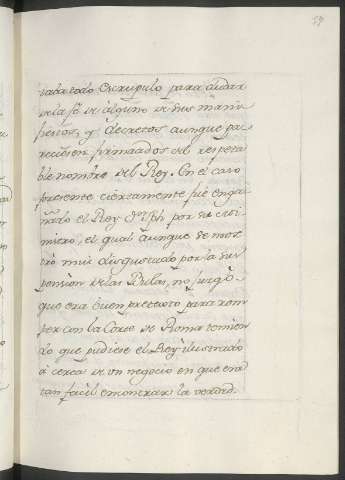 todo Escrupulo para dudar
de la fé de alguno de sus mani-
fiestos, y decretos aunque pa-
reciesen firmados del respeta-
ble nombre del Rey. En el caso
presente ciertamente fue enga-
ñado el Rey Dn Jph por su
el qual aunque se mos-
tró mui disgustado por la sus-
pension de las Bulas, no juzgó
que era buen pretexto para rom-
per con la Corte de Roma temien-
do que pudiese el Rey ilustrado
á cerca de un negocio en que era
tan facil encontrar la verdad.